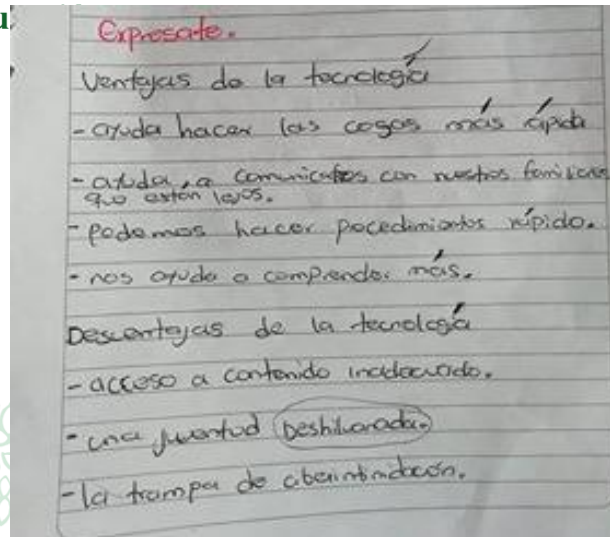 u
Expresate.
Ventajas de la tecnología
- ayuda hacer las cosas más rápida
- ayuda, a comunicarnos con nuestros familiares
que están lejos.
- podemos hacer pocedimientos rápido.
- nos ayuda a comprender más.
Desventajas de la tecnología
- acceso a contenido inadecuado.
- una juventud
- la trampa de